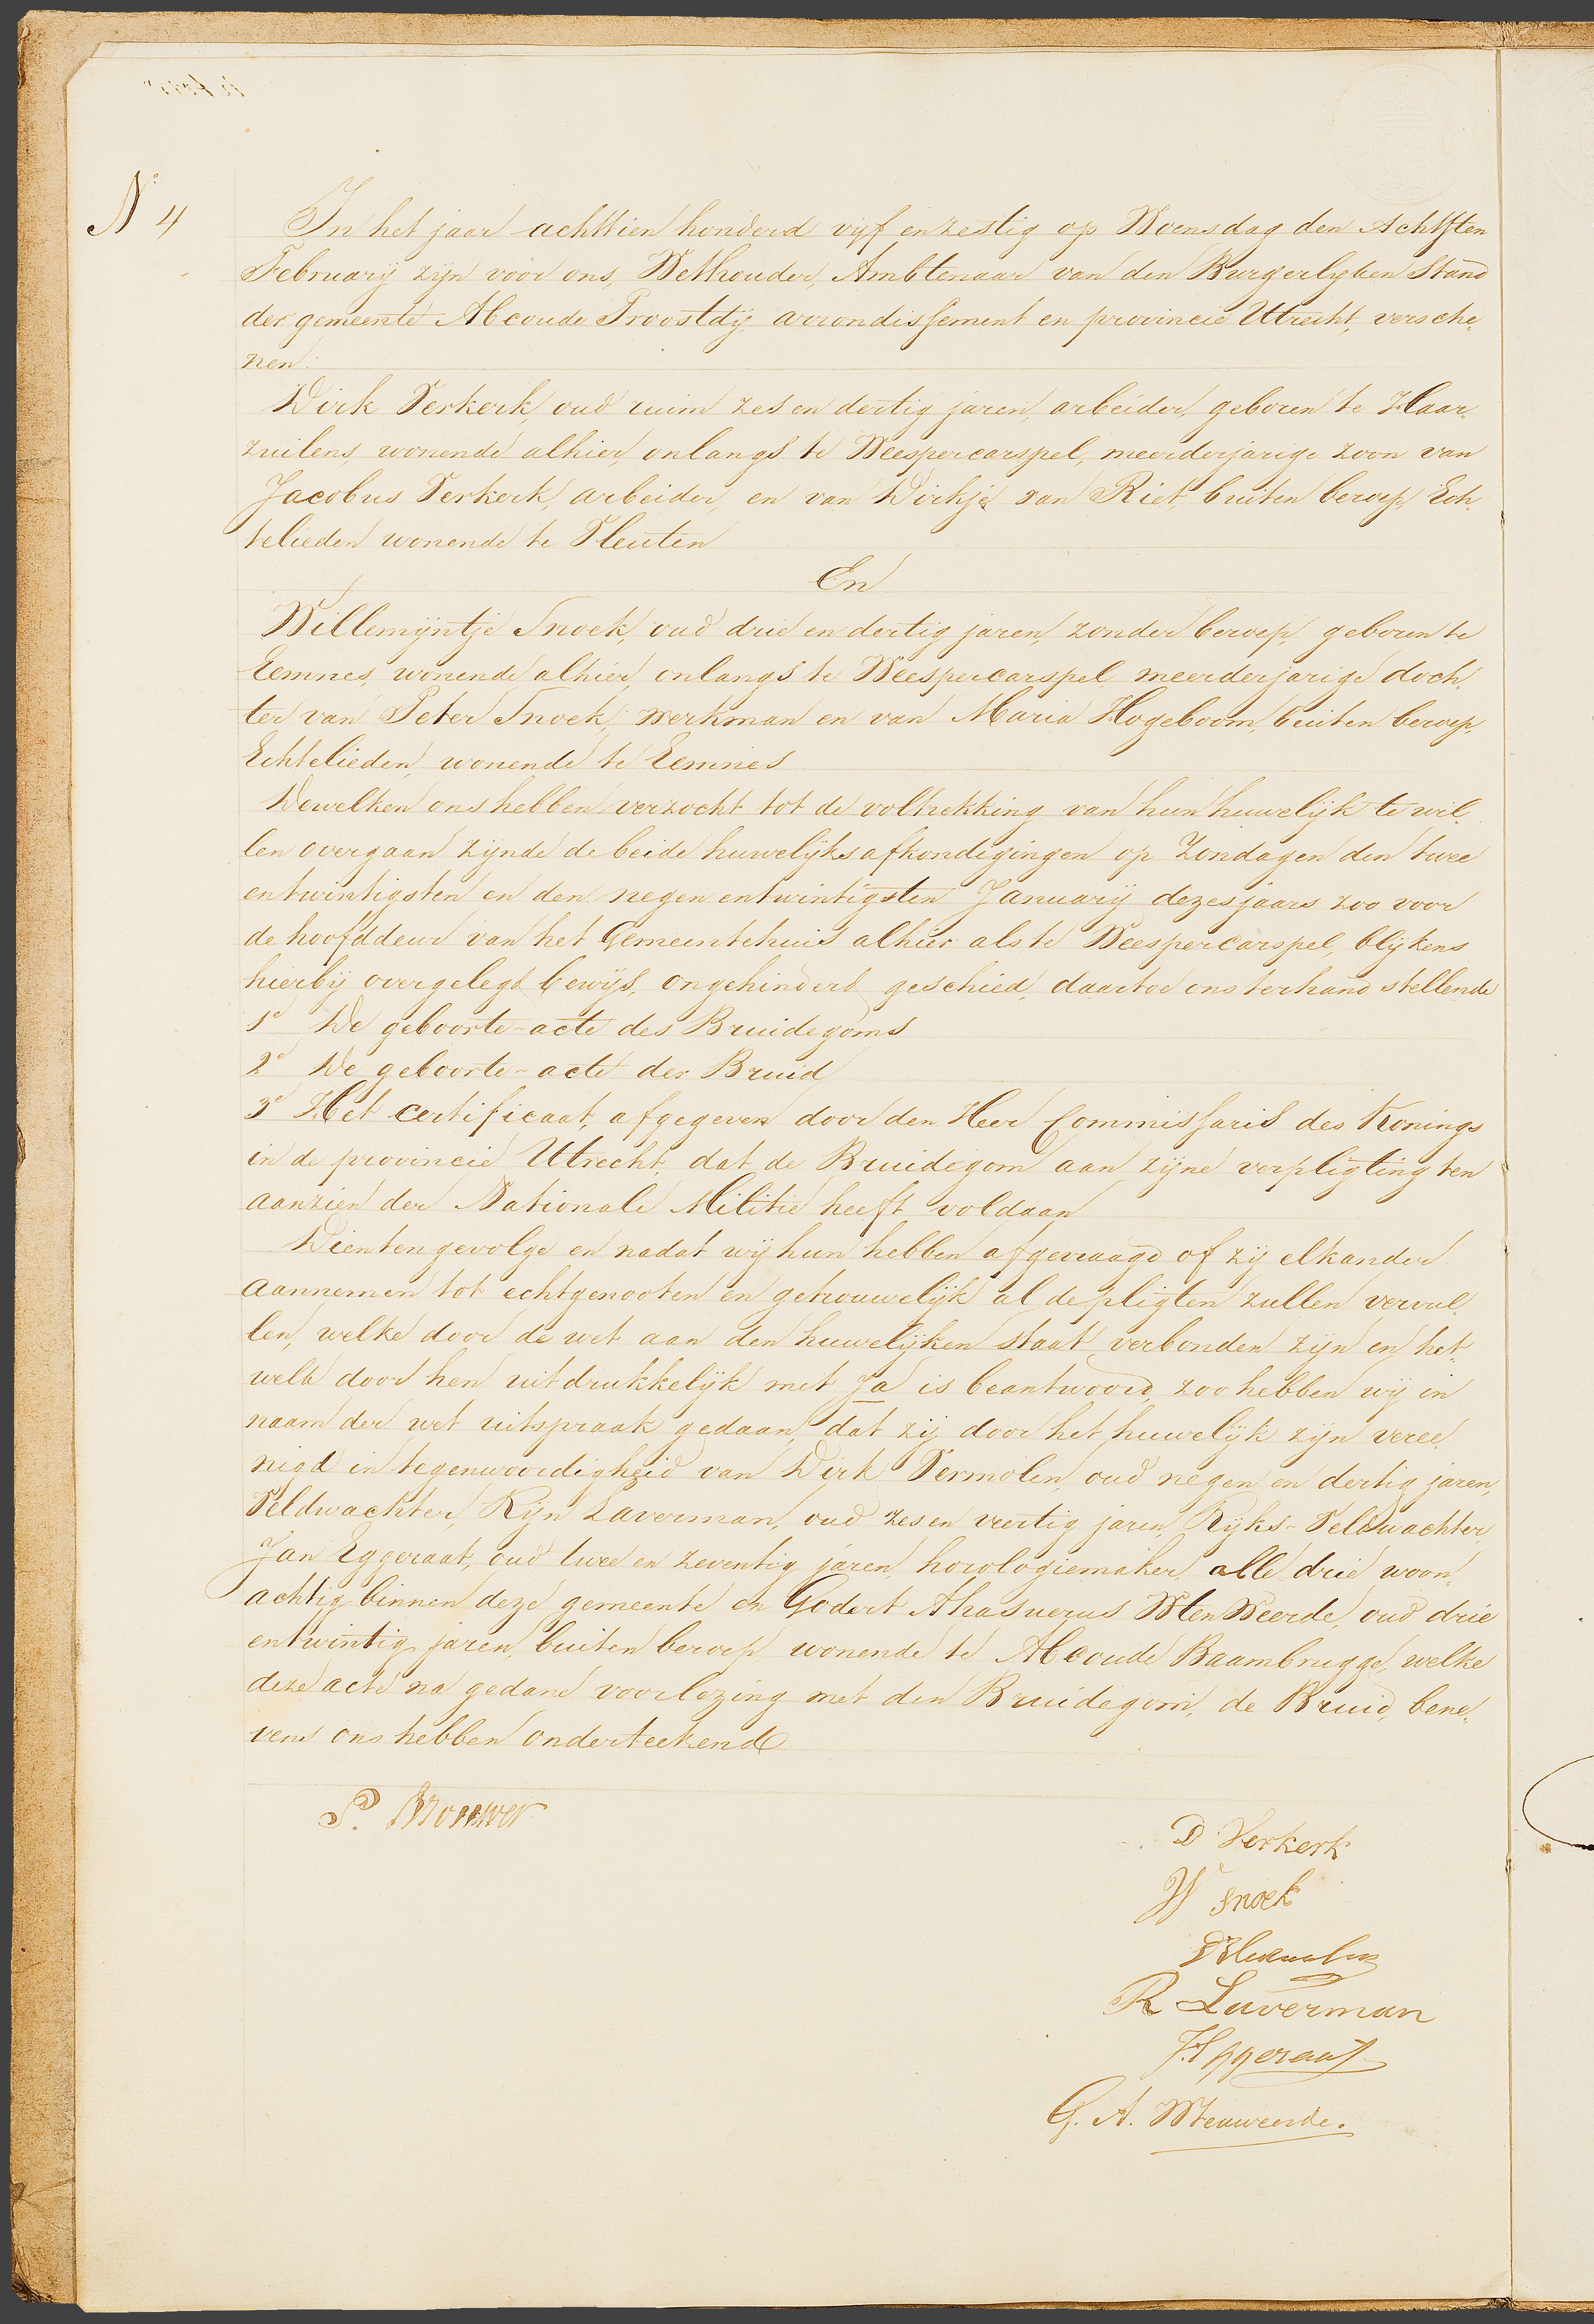 N° 4
In het jaar achttien honderd vijf en zestig op Woensdag den Achtsten
February zijn voor ons, Wethouder, Ambtenaar van den Burgerlyken Stand
der gemeente Abcoude Proostdy, arrondissement en provincie Utrecht, versche,
nen:
Dirk Verkerk, oud ruim zes en dertig jaren, arbeider, geboren te Haar,
zuilens, wonende alhier, onlangs te Weespercarspel, meerderjarige zoon van
Jacobus Verkerk, arbeider, en van Dirkje van Riet, buiten beroep, Ech,
telieden wonende te Vleuten
En
Willemijntje Snoek, oud drie en dertig jaren, zonder beroep, geboren te
Eemnes, wonende alhier, onlangs te Weespercarspel, meerderjarige doch,
ter van Peter Snoek, werkman en van Maria Hogeboom, buiten beroep,
Echtelieden, wonende te Eemnes
Dewelken ons hebben verzocht tot de voltrekking van hun huwelijk te wil,
len overgaan zijnde de beide huwelijks afkondigingen op Zondagen den twee
en twintigsten en den negen en twintigsten January dezes jaars zoo voor
de hoofddeur van het Gemeentehuis alhier als te Weespercarspel, blijkens
hierbij overgelegd bewijs, ongehinderd geschied, daartoe ons terhand stellende
1° De geboorte-acte des Bruidegoms
2° De geboorte-acte der Bruid
3° Het certificaat, afgegeven door den Heer Commissaris des Konings
in de provincie Utrecht, dat de Bruidegom aan zijne verpligting ten
aanzien der Nationale Militie heeft voldaan
Dientengevolge en nadat wij hun hebben afgevraagd of zij elkander
aannemen tot echtgenooten en getrouwelijk al de pligten zullen vervul,
len, welke door de wet aan den huwelijken staat verbonden zijn en het,
welk door hen uitdrukkelijk met Ja is beantwoord, zoo hebben wij in
naam der wet uitspraak gedaan, dat zij door het huwelijk zijn veree,
nigd in tegenwoordigheid van Dirk Vermolen, oud negen en dertig jaren,
Veldwachter, Rijn Laverman, oud zes en veertig jaren, Rijks-Veldwachter,
Jan Eggeraat, oud twee en zeventig jaren, horologiemaker, alle drie woon,
achtig binnen deze gemeente en Godert Ahasuerus Wten Weerde, oud drie
en twintig jaren, buiten beroep, wonende te Abcoude Baambrugge, welke
deze acte na gedane voorlezing met den Bruidegom, de Bruid, bene,
vens ons hebben onderteekend
P. Brouwer
D Verkerk
W Snoek
R Laverman
J. Eggeraat
G. A. Wtenweerde.